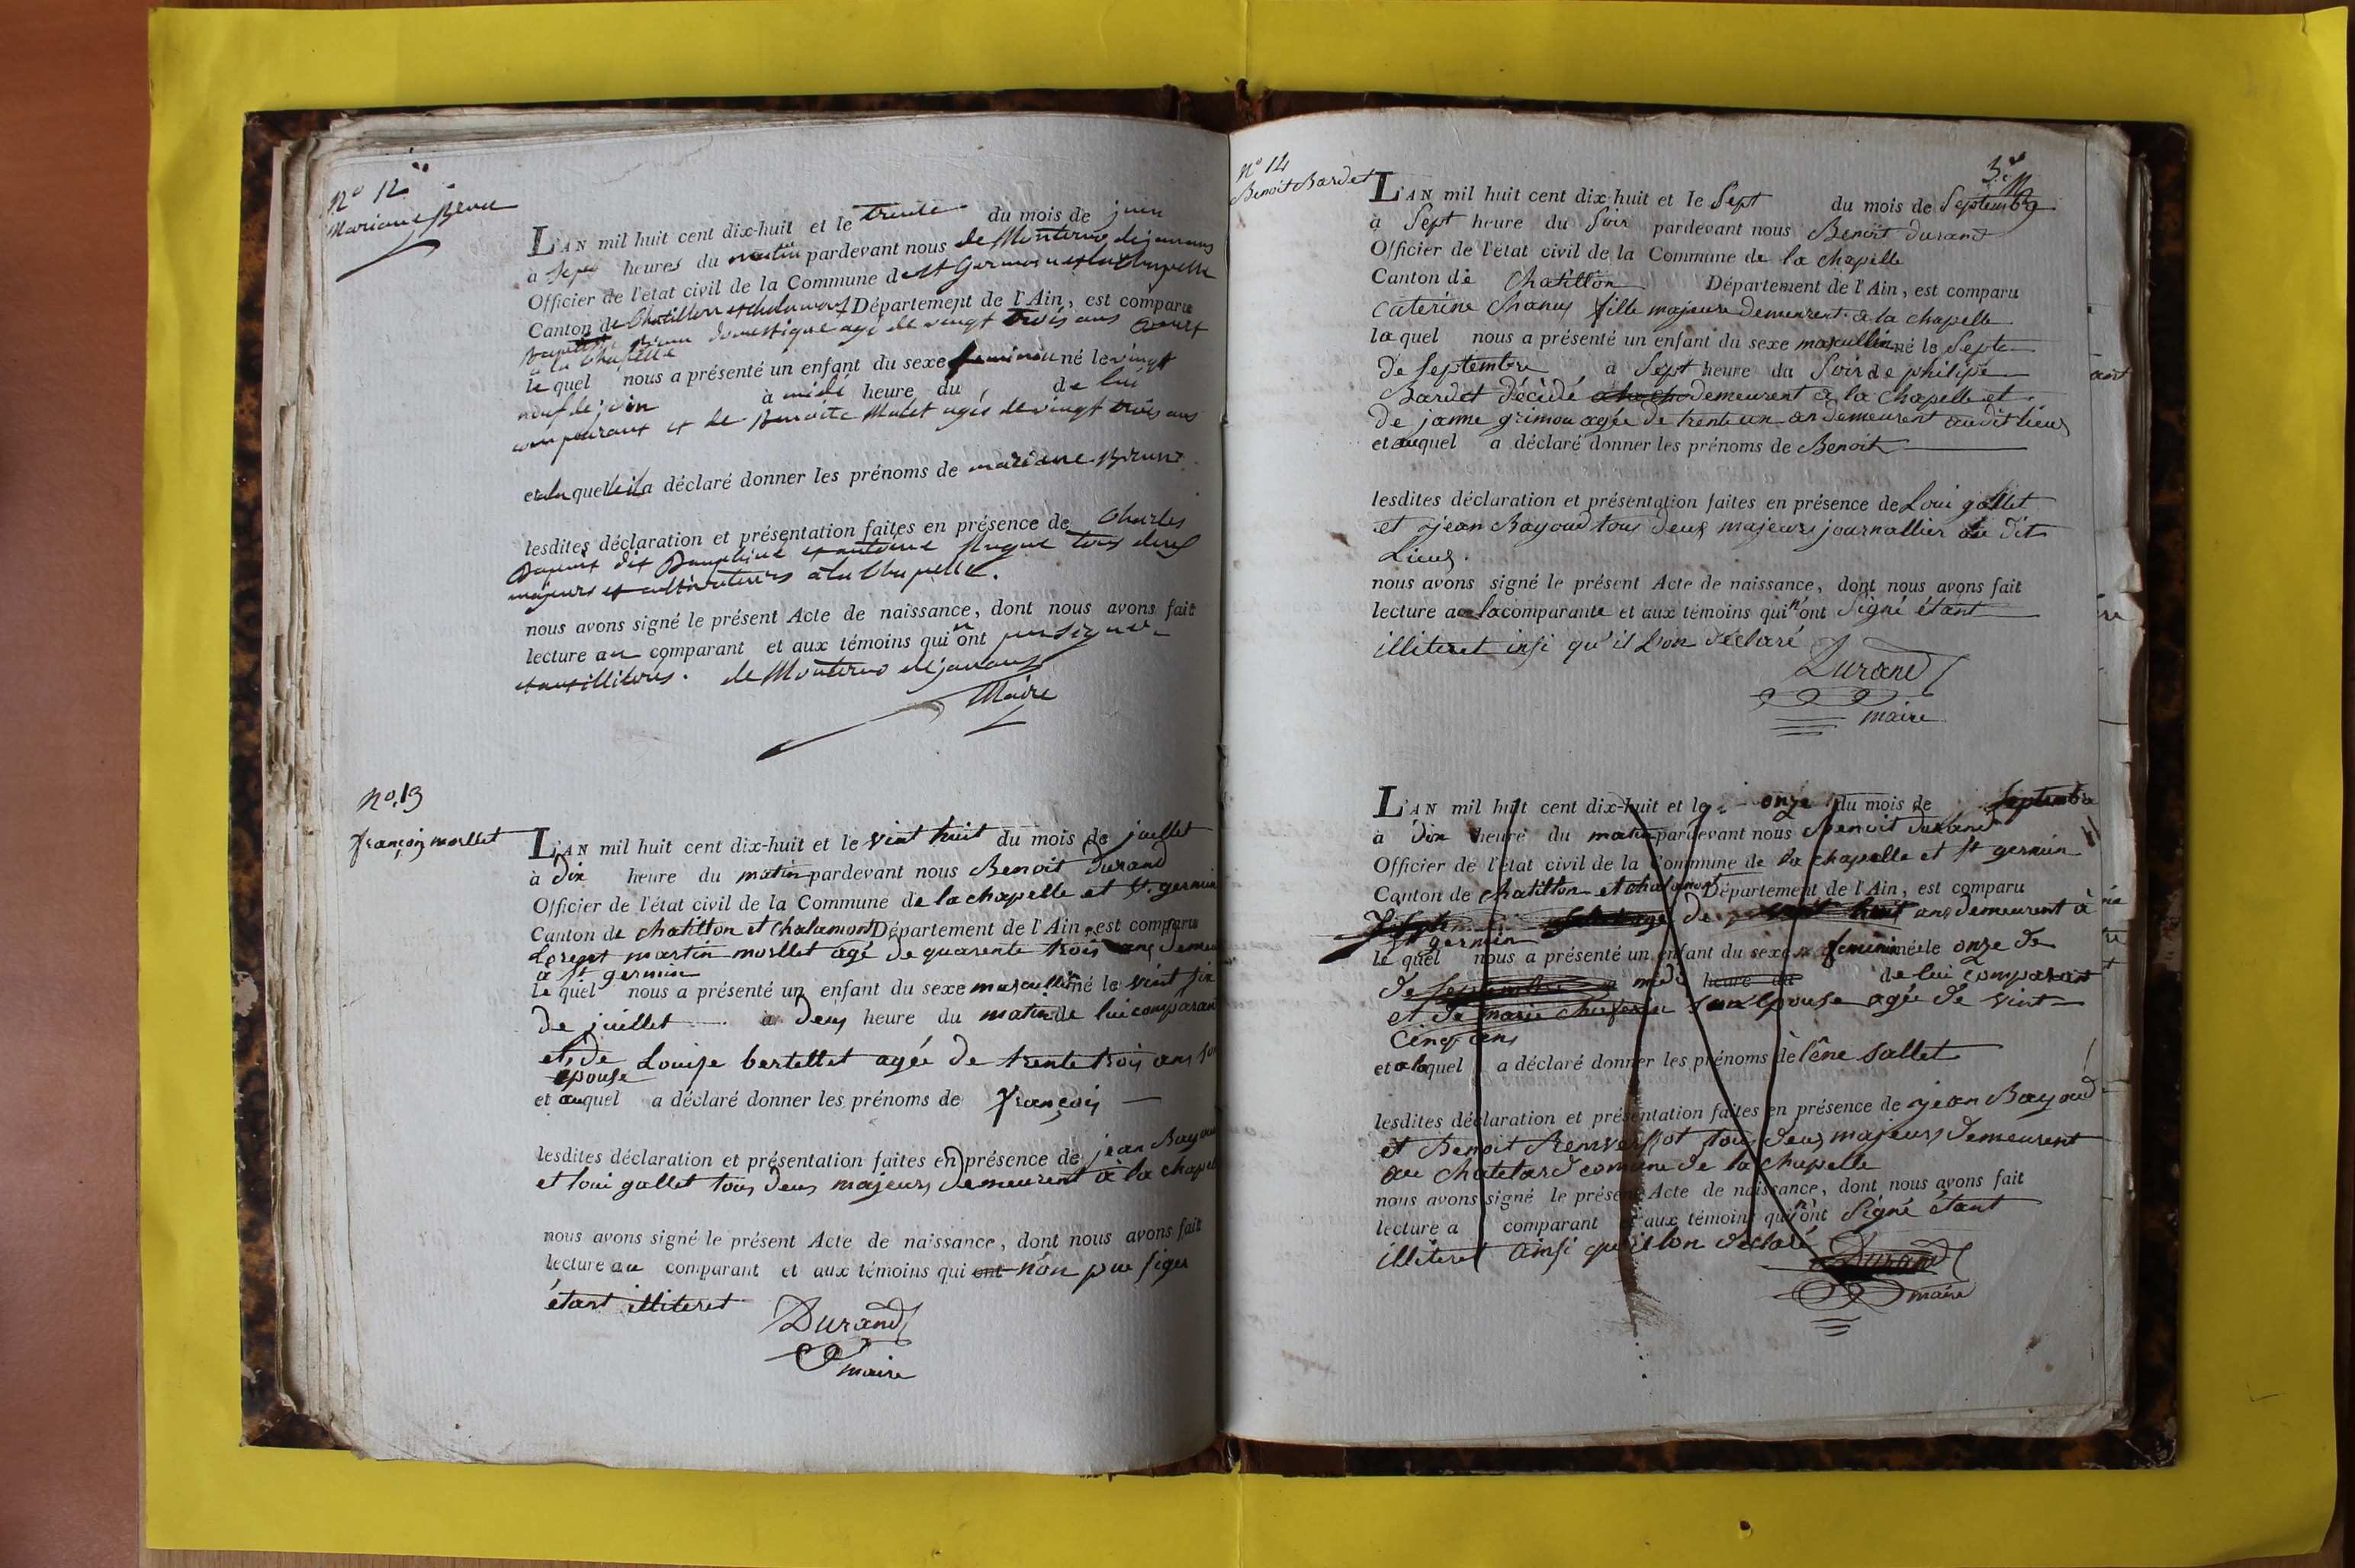 N° 12
Mariane Brun
L'AN mil huit cent dix-huit et le trente du mois de juin
à sept heures du matin pardevant nous de Monterno dejanans
Officier de l'état civil de la Commune de St Germain et la Chapelle
Canton de Chatillon et chalamont Département de l'Ain, est comparu
domestique agé de vingt trois ans
à la Chapelle
le quel nous a présenté un enfant du sexe feminin né le vingt
neuf de juin à midi heure du de lui
comparant et de Benoite Malet agés de vingt trois ans
et a déclaré donner les prénoms de mariane Brun
lesdites déclaration et présentation faites en présence de Charles
dit et antoine tous deux
majeurs et cultivateurs à la Chapelle.
nous avons signé le présent Acte de naissance, dont nous avons fait
lecture au comparant et aux témoins qui n'ont pu signer
illiteres. de Monterno dejanans
Maire
No. 13
françois morllet
L'AN mil huit cent dix-huit et le vint huit du mois de juillet
à dix heure du matin pardevant nous Benoit durand
Officier de l'état civil de la Commune de la chapelle et St. germin
Canton de chatillon et chalamont Département de l'Ain, est comparu
Lorent martin morllet agé de quarente trois ans
à St germin
le quel nous a présenté un enfant du sexe masculin né le vint six
de juillet à deux heure du matin de lui comparan
et de Louise bertellet agée de trente trois ans
epouse
et auquel a déclaré donner les prénoms de françois
lesdites déclaration et présentation faites en présence de jean Bayou
et loui gallet tous deux majeurs demeurent à la chapel
nous avons signé le présent Acte de naissance, dont nous avons fait
lecture au comparant et aux témoins qui ont non pue signer
étant illiteret
Durand
maire
N° 14
Benoit Bardet
L'AN mil huit cent dix-huit et le sept du mois de septembre
à sept heure du soir pardevant nous Benoit durand
Officier de l'état civil de la Commune de la chapelle
Canton de Chatillon Département de l'Ain, est comparu
caterine Chanus fille majeure demeurent à la chapelle
la quel nous a présenté un enfant du sexe masculin né le septe
de septembre à sept heure du soir de philipe
Bardet décédé demeurent à la chapelle et
de janne grimou agée de trente un an demeurent audit lieus
et auquel a déclaré donner les prénoms de Benoit
lesdites déclaration et présentation faites en présence de Loui gallet
et jean Bayoud tous deux majeurs journallier du dit
Lieus.
nous avons signé le présent Acte de naissance, dont nous avons fait
lecture a la comparante et aux témoins qui n'ont signé étant
illiteret insi qu'il lon déclaré
Durand
maire
L'AN mil huit cent dix-huit et le onze du mois de septembre
à dix heure du matin pardevant nous Benoit durand
Officier de l'état civil de la Commune de la chapelle et St germin
Canton de chatillon et chalamont Département de l'Ain, est comparu
agé de vint huit ans demeurent à
St germin
le quel nous a présenté un enfant du sexe feminin née le onze de
de septembre à midi heure du de lui comparant
et de marie son epouse agée de vint
cinq ans
et a laquel a déclaré donner les prénoms de lêne sallet
lesdites déclaration et présentation faites en présence de jean Bayoud
et Benoit tous deux majeurs demeurent
au chatelard comune de la chapelle
nous avons signé le présent Acte de naissance, dont nous avons fait
lecture a comparant et aux témoins qui n'ont signé étant
illiteret ainsi qu'il lon déclaré
Durand
maire